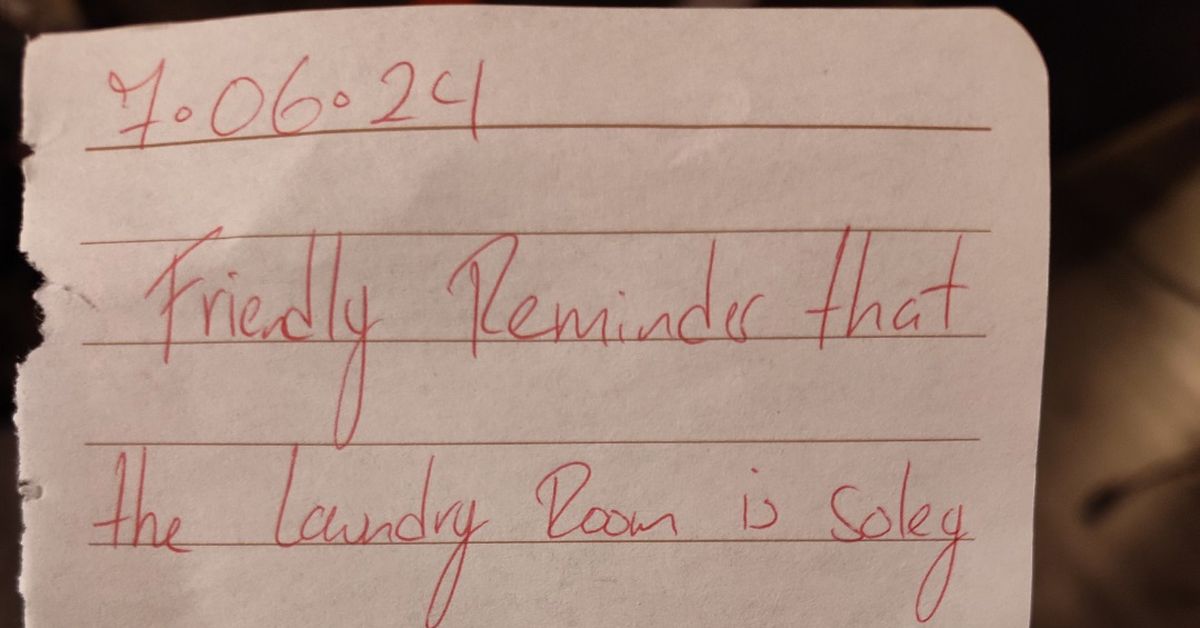 7.06.24
Friendly Reminder that
the laundry Room is soley